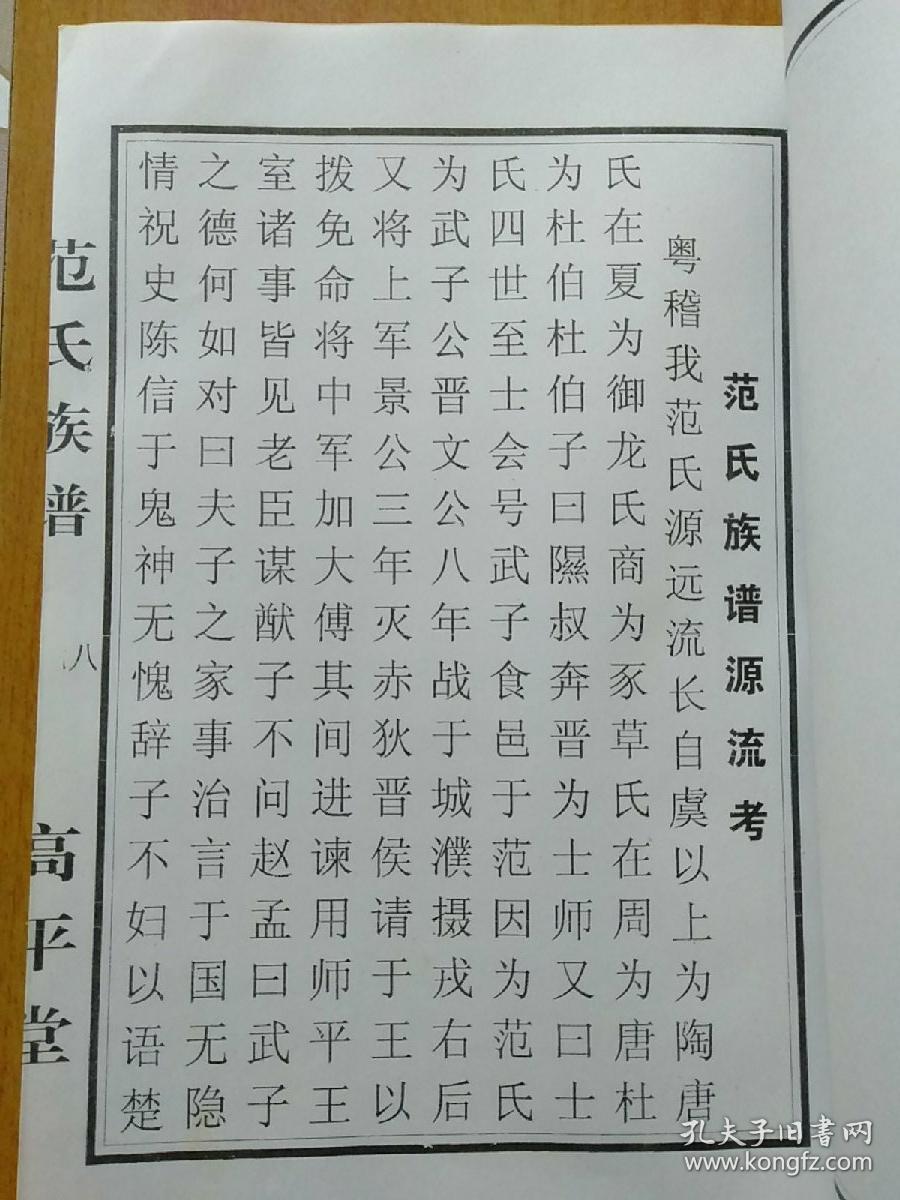 范氏族谱源流考
粤稽我范氏源远流长自虞以上为陶唐
氏在夏为御龙氏商为豕草氏在周为唐杜
为杜伯杜伯子曰隰叔奔晋为士师又曰士
氏四世至士会号武子食邑于范因为范氏
为武子公晋文公八年战于城濮摄戎右后
又将上军景公三年灭赤狄晋侯请于王以
拨免命将中军加大傅其间进谏用师平王
室诸事皆见老臣谋猷子不问赵孟曰武子
之德何如对曰夫子之家事治言于国无隐
情祝史陈信于鬼神无愧辞子不妇以语楚
范氏族谱
八
高平堂
孔夫子旧书网
www.kongfz.com